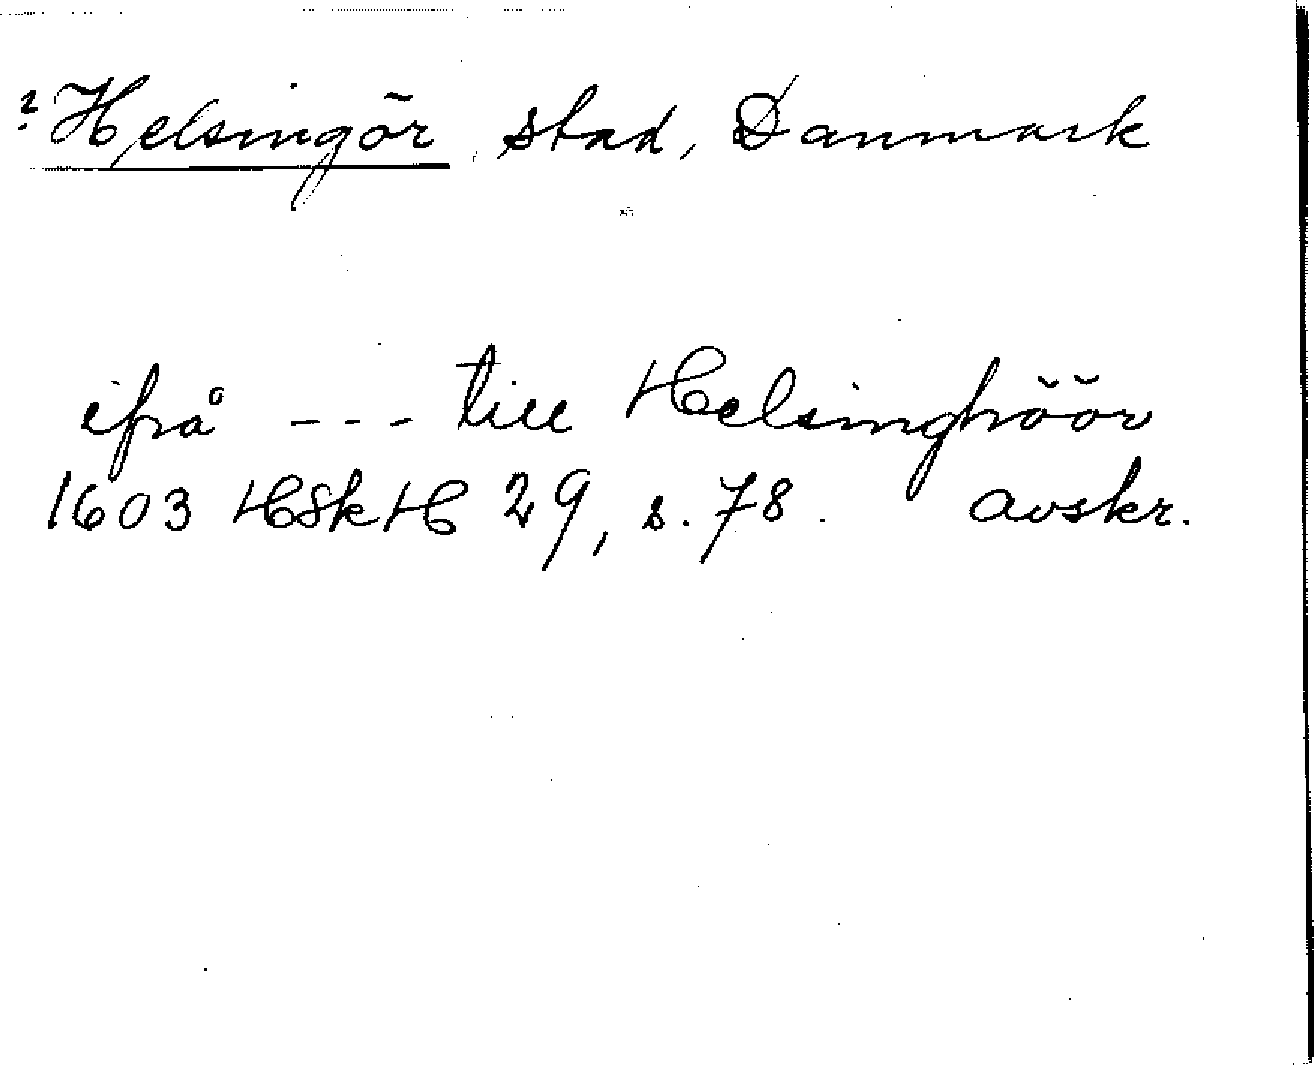 ? Helsingör, stad, Danmark
ifrå --- till Helsinghöör
1603 HSkH 29, s. 78. avskr.